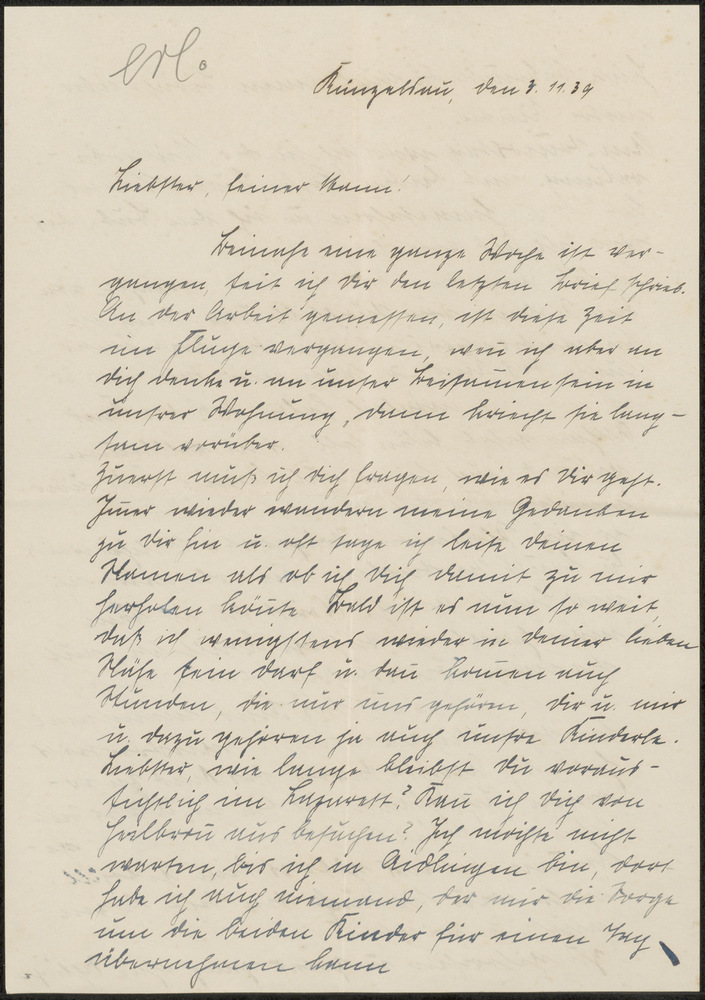 erl.
Künzelsau, den 3. 11. 39
Liebster, feiner Mann!
Beinahe eine ganze Woche ist ver-
gangen, seit ich Dir den letzten Brief schrieb.
An der Arbeit gemessen, ist diese Zeit
im Fluge vergangen, weñ ich aber an
Dich denke u. an unser Beisam̃ensein in
unsrer Wohnung, dann kriecht sie lang-
sam vorüber.
Zuerst muß ich Dich fragen, wie es Dir geht.
Im̃er wieder wandern meine Gedanken
zu Dir hin u. oft sage ich leise Deinen
Namen als ob ich Dich damit zu mir
herholen köñte. Bald ist es nun so weit,
daß ich wenigstens wieder in Deiner lieben
Nähe sein darf u. dañ kom̃en auch
Stunden, die nur uns gehören, Dir u. mir
u. dazu gehören ja auch unsre Kinderle.
Liebster, wie lange bleibst Du voraus-
sichtlich im Lazarett? Kañ ich Dich von
Heilbroñ aus besuchen? Ich möchte nicht
warten, bis ich in Aidlingen bin, dort
habe ich auch niemand, der mir die Sorge
um die beiden Kinder für einen Tag
übernehmen kann